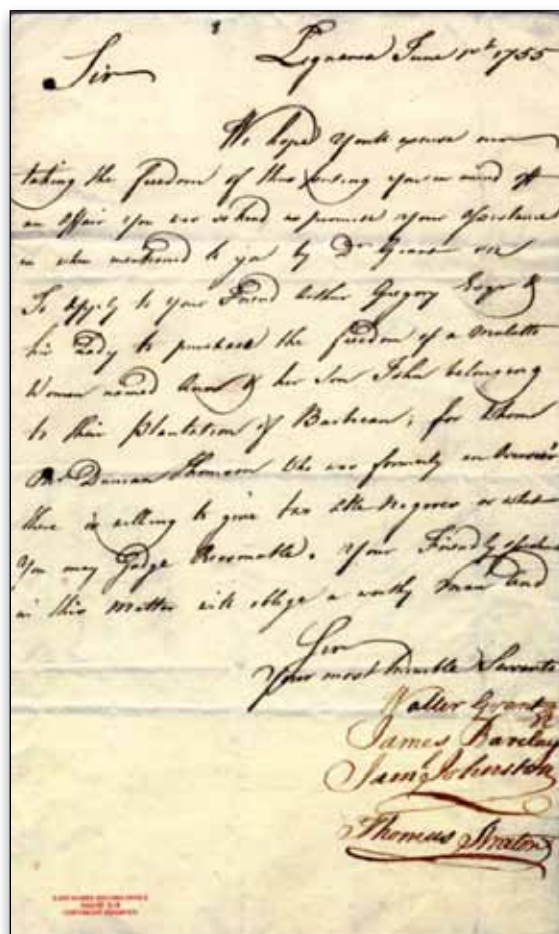 Liguanea June 1st 1755
Sir
We hope you'll excuse our
taking the freedom of thus putting you in mind off
an affair you was so kind as promise your assistance
in when mentioned to you by Dr Grant
To apply to your Friend Arthur Gregory Esqr &
his Lady to purchase the freedom of a Mulatto
Woman named Ann & her Son John belonging
to their Plantation of Barbican; for whom
Mr Duncan Thomson who was formerly an Overseer
there is willing to give two able Negroes or what
You may Judge Reasonable. Your Friendly
in this Matter will oblige a worthy man and
Sir
Your most humble Servants
Walter Grant
James Barclay
Jams Johnston
Thomas Straton
COPYRIGHT RESERVED